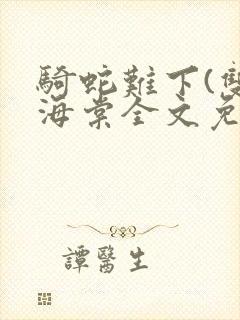 騎蛇難下(雙
海棠全文免
譚醫生